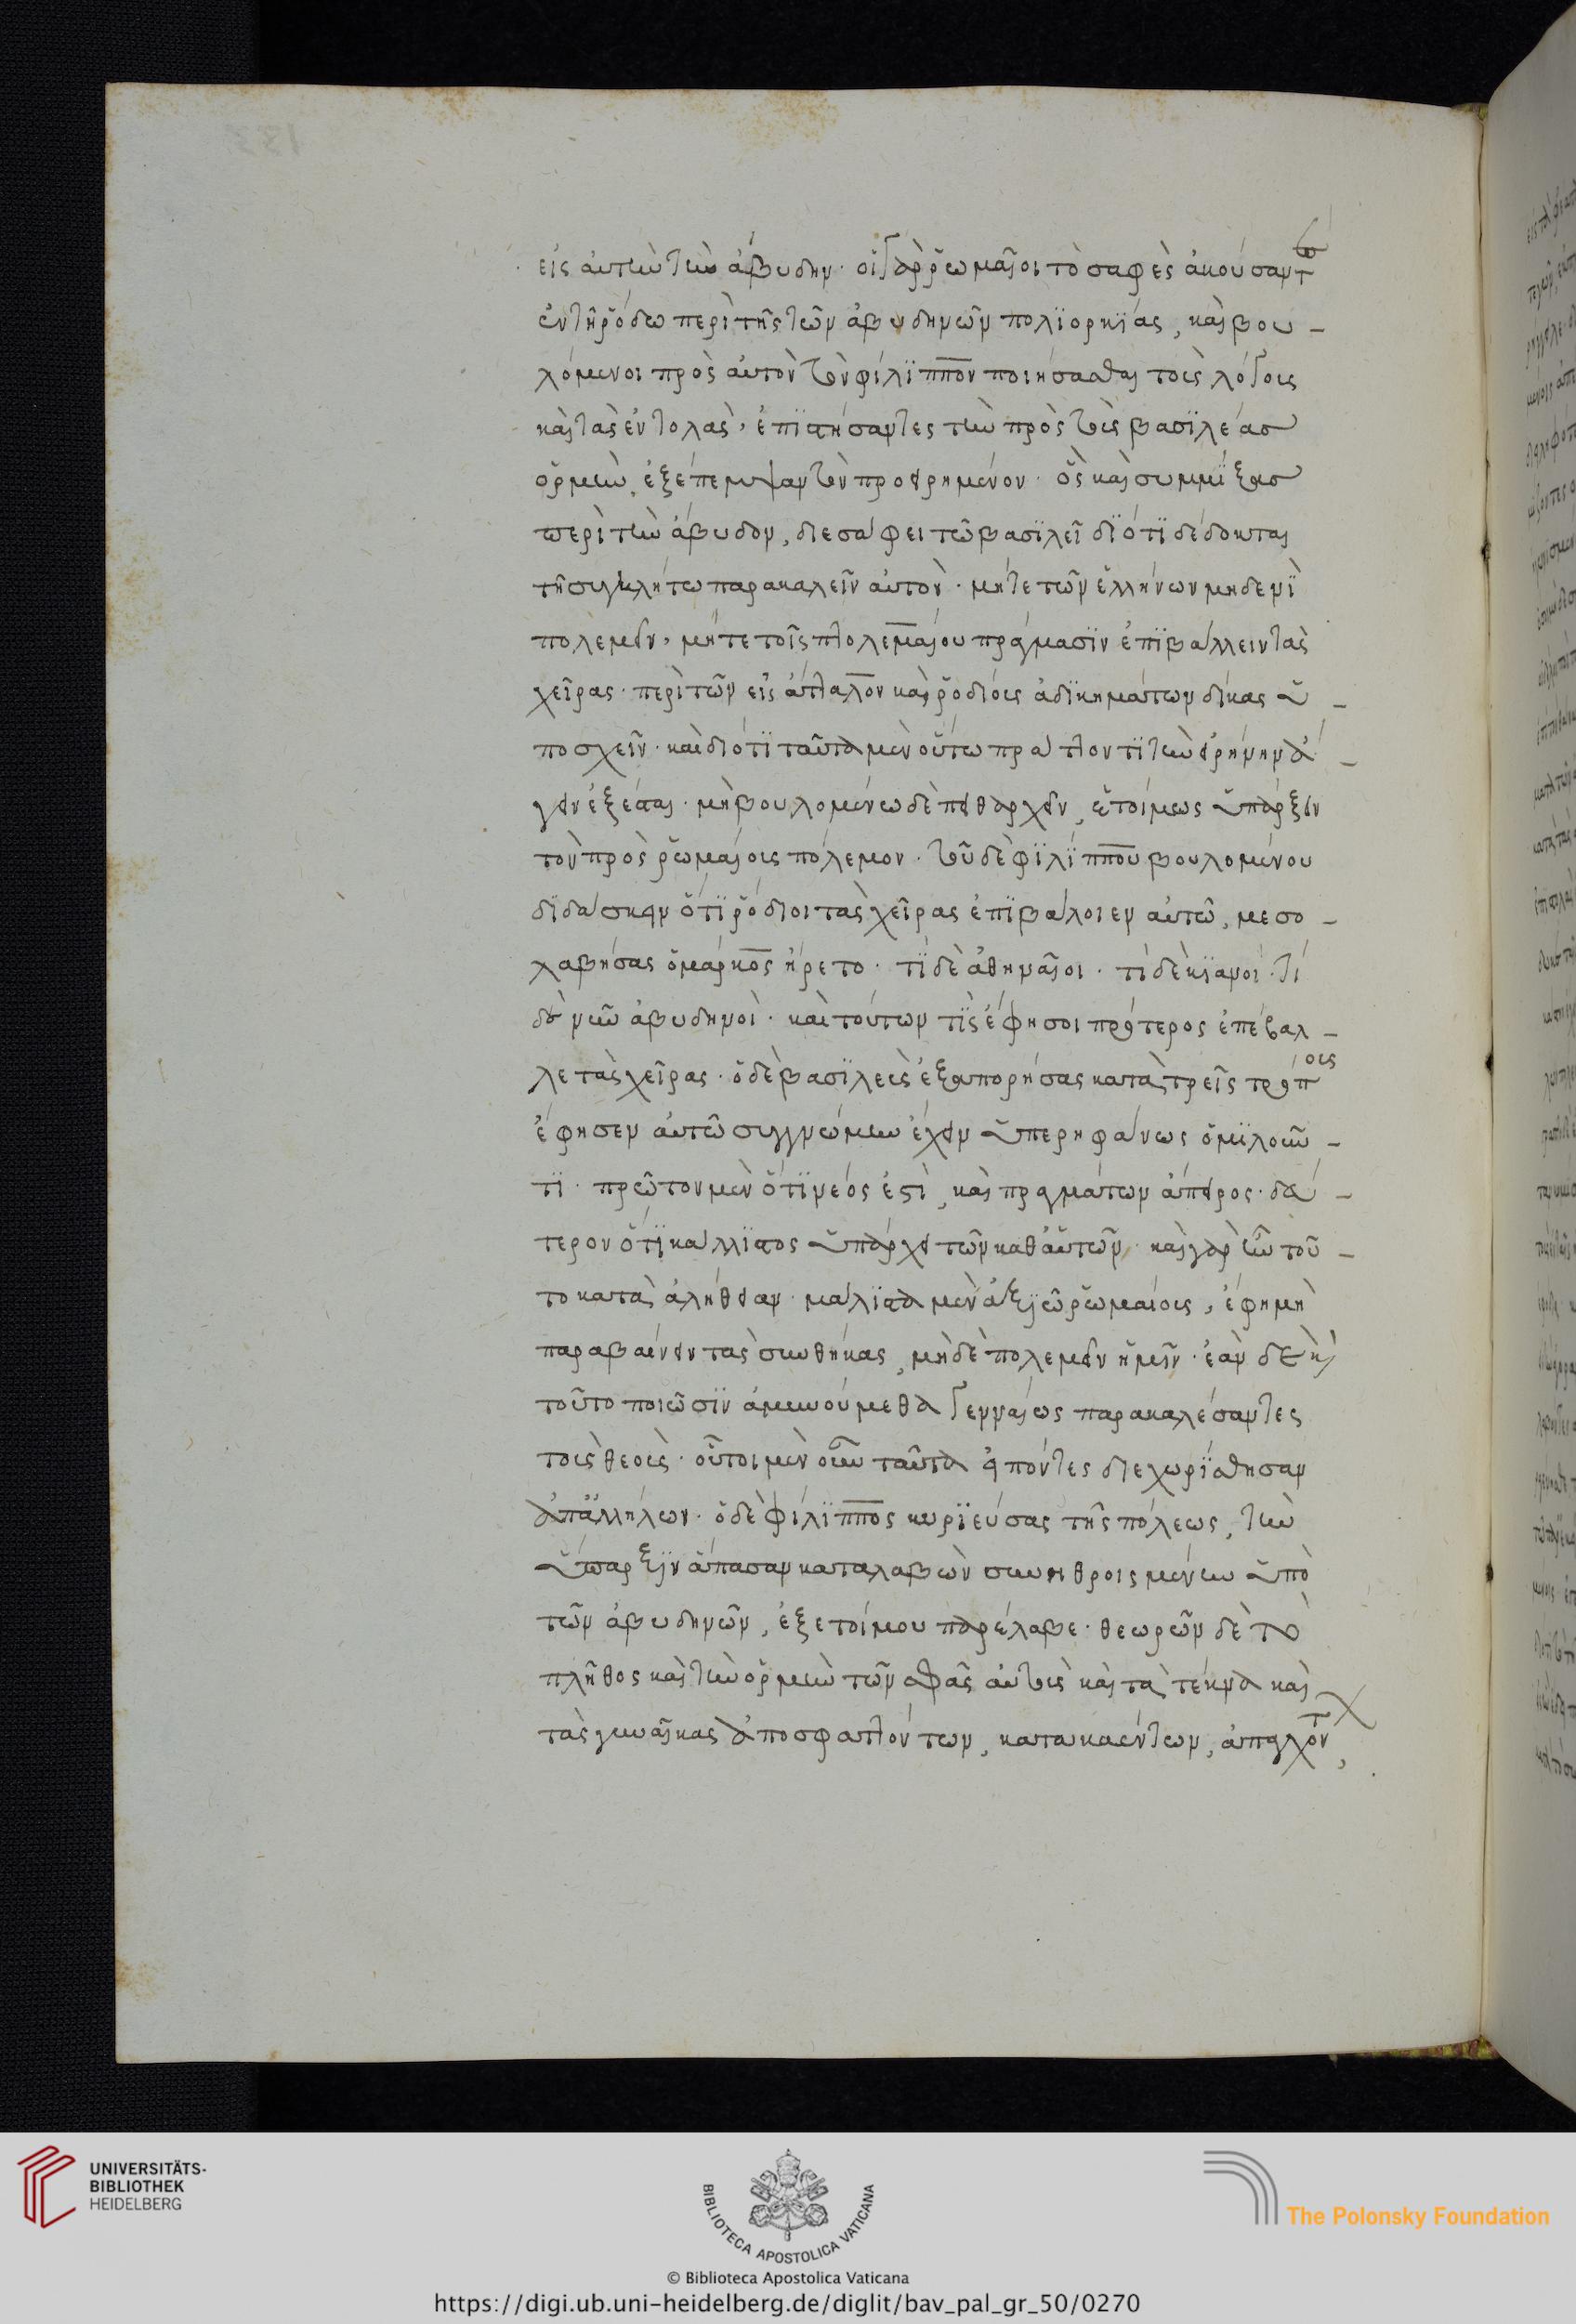 εἰς αὐτὴν τὴν ἄβυδην· οἱ γὰρ ῥωμαῖοι τὸ σαφὲς ἀκούσαντ
ἐν τῇ ῥόδω περὶ τῆς τῶν ἀβυδηνῶν πολιορκίας, καὶ βου-
λόμενοι πρὸς αὐτὸν τὸν φίλιππον ποιήσασθαι τοὺς λόγους
καὶ τὰς ἐντολὰς, ἐπιστήσαντες τὴν πρὸς τοὺς βασιλέας
ὁρμὴν, ἐξέπεμψαν τὸν προειρημένον· ὃς καὶ συμμίξας
περὶ τὴν ἄβυδον, διεσάφει τῶ βασιλεῖ διότι δέδοκται
τῆ συγκλήτω παρακαλεῖν αὐτὸν· μήτε τῶν ἑλλήνων μηδενὶ
πολεμεῖν, μήτε τοῖς πτολεμαίου πράγμασιν ἐπιβάλλειν τὰς
χεῖρας· περὶ τῶν εἰς ἄτταλον καὶ ῥοδίους ἀδικημάτων δίκας ὑ-
ποσχεῖν· καὶ διότι ταῦτα μὲν οὕτω πράττοντι τὴν εἰρήνην ἄ-
γειν ἐξέσται· μὴ βουλομένω δὲ πειθαρχεῖν, ἑτοίμως ὑπάρξειν
τὸν πρὸς ῥωμαίους πόλεμον· τοῦ δὲ φιλίππου βουλομένου
διδάσκειν ὅτι ῥόδιοι τὰς χεῖρας ἐπιβάλοιεν αὐτῶ, μεσο-
λαβήσας ὁ μάρκος ἤρετο· τί δὲ ἀθηναῖοι· τί δὲ κιανοί· τί
δὲ νῦν ἀβυδηνοὶ· καὶ τούτων τίς ἔφη σοι πρότερος ἐπέβαλ-
λε τὰς χεῖρας· ὁ δὲ βασιλεὺς ἐξαπορήσας κατὰ τρεῖς τρόπους
ἔφησεν αὐτῶ συγγνώμην ἔχειν ὑπερηφάνως ὁμιλοῦν-
τι· πρῶτον μὲν ὅτι νέος ἐστὶ, καὶ πραγμάτων ἄπειρος· δεύ-
τερον ὅτι κάλλιστος ὑπάρχει τῶν καθ' αὑτῶν· καὶ γὰρ ἦν τοῦ-
το κατὰ ἀλήθειαν· μάλιστα μὲν ἀξιῶ ῥωμαίους, ἔφη μὴ
παραβαίνειν τὰς συνθήκας, μηδὲ πολεμεῖν ἡμῖν· ἐὰν δὲ καὶ
τοῦτο ποιῶσιν ἀμυνούμεθα γενναίως παρακαλέσαντες
τοὺς θεοὺς· οὗτοι μὲν οὖν ταῦτα εἰπόντες διεχωρίσθησαν
ἀπ' ἀλλήλων· ὁ δὲ φίλιππος κυριεύσας τῆς πόλεως, τὴν
ὕπαρξιν ἅπασαν καταλαβὼν συνηθροισμένην ὑπὸ
τῶν ἀβυδηνῶν, ἐξ ἑτοίμου παρέλαβε· θεωρῶν δὲ τὸ
πλῆθος καὶ τὴν ὁρμὴν τῶν σφᾶς αὐτοὺς καὶ τὰ τέκνα καὶ
τὰς γυναῖκας ἀποσφαττόντων, κατακαέντων, ἀπαγχόντ,
UNIVERSITÄTS-
BIBLIOTHEK
HEIDELBERG
BIBLIOTECA APOSTOLICA VATICANA
The Polonsky Foundation
© Biblioteca Apostolica Vaticana
https://digi.ub.uni-heidelberg.de/diglit/bav_pal_gr_50/0270